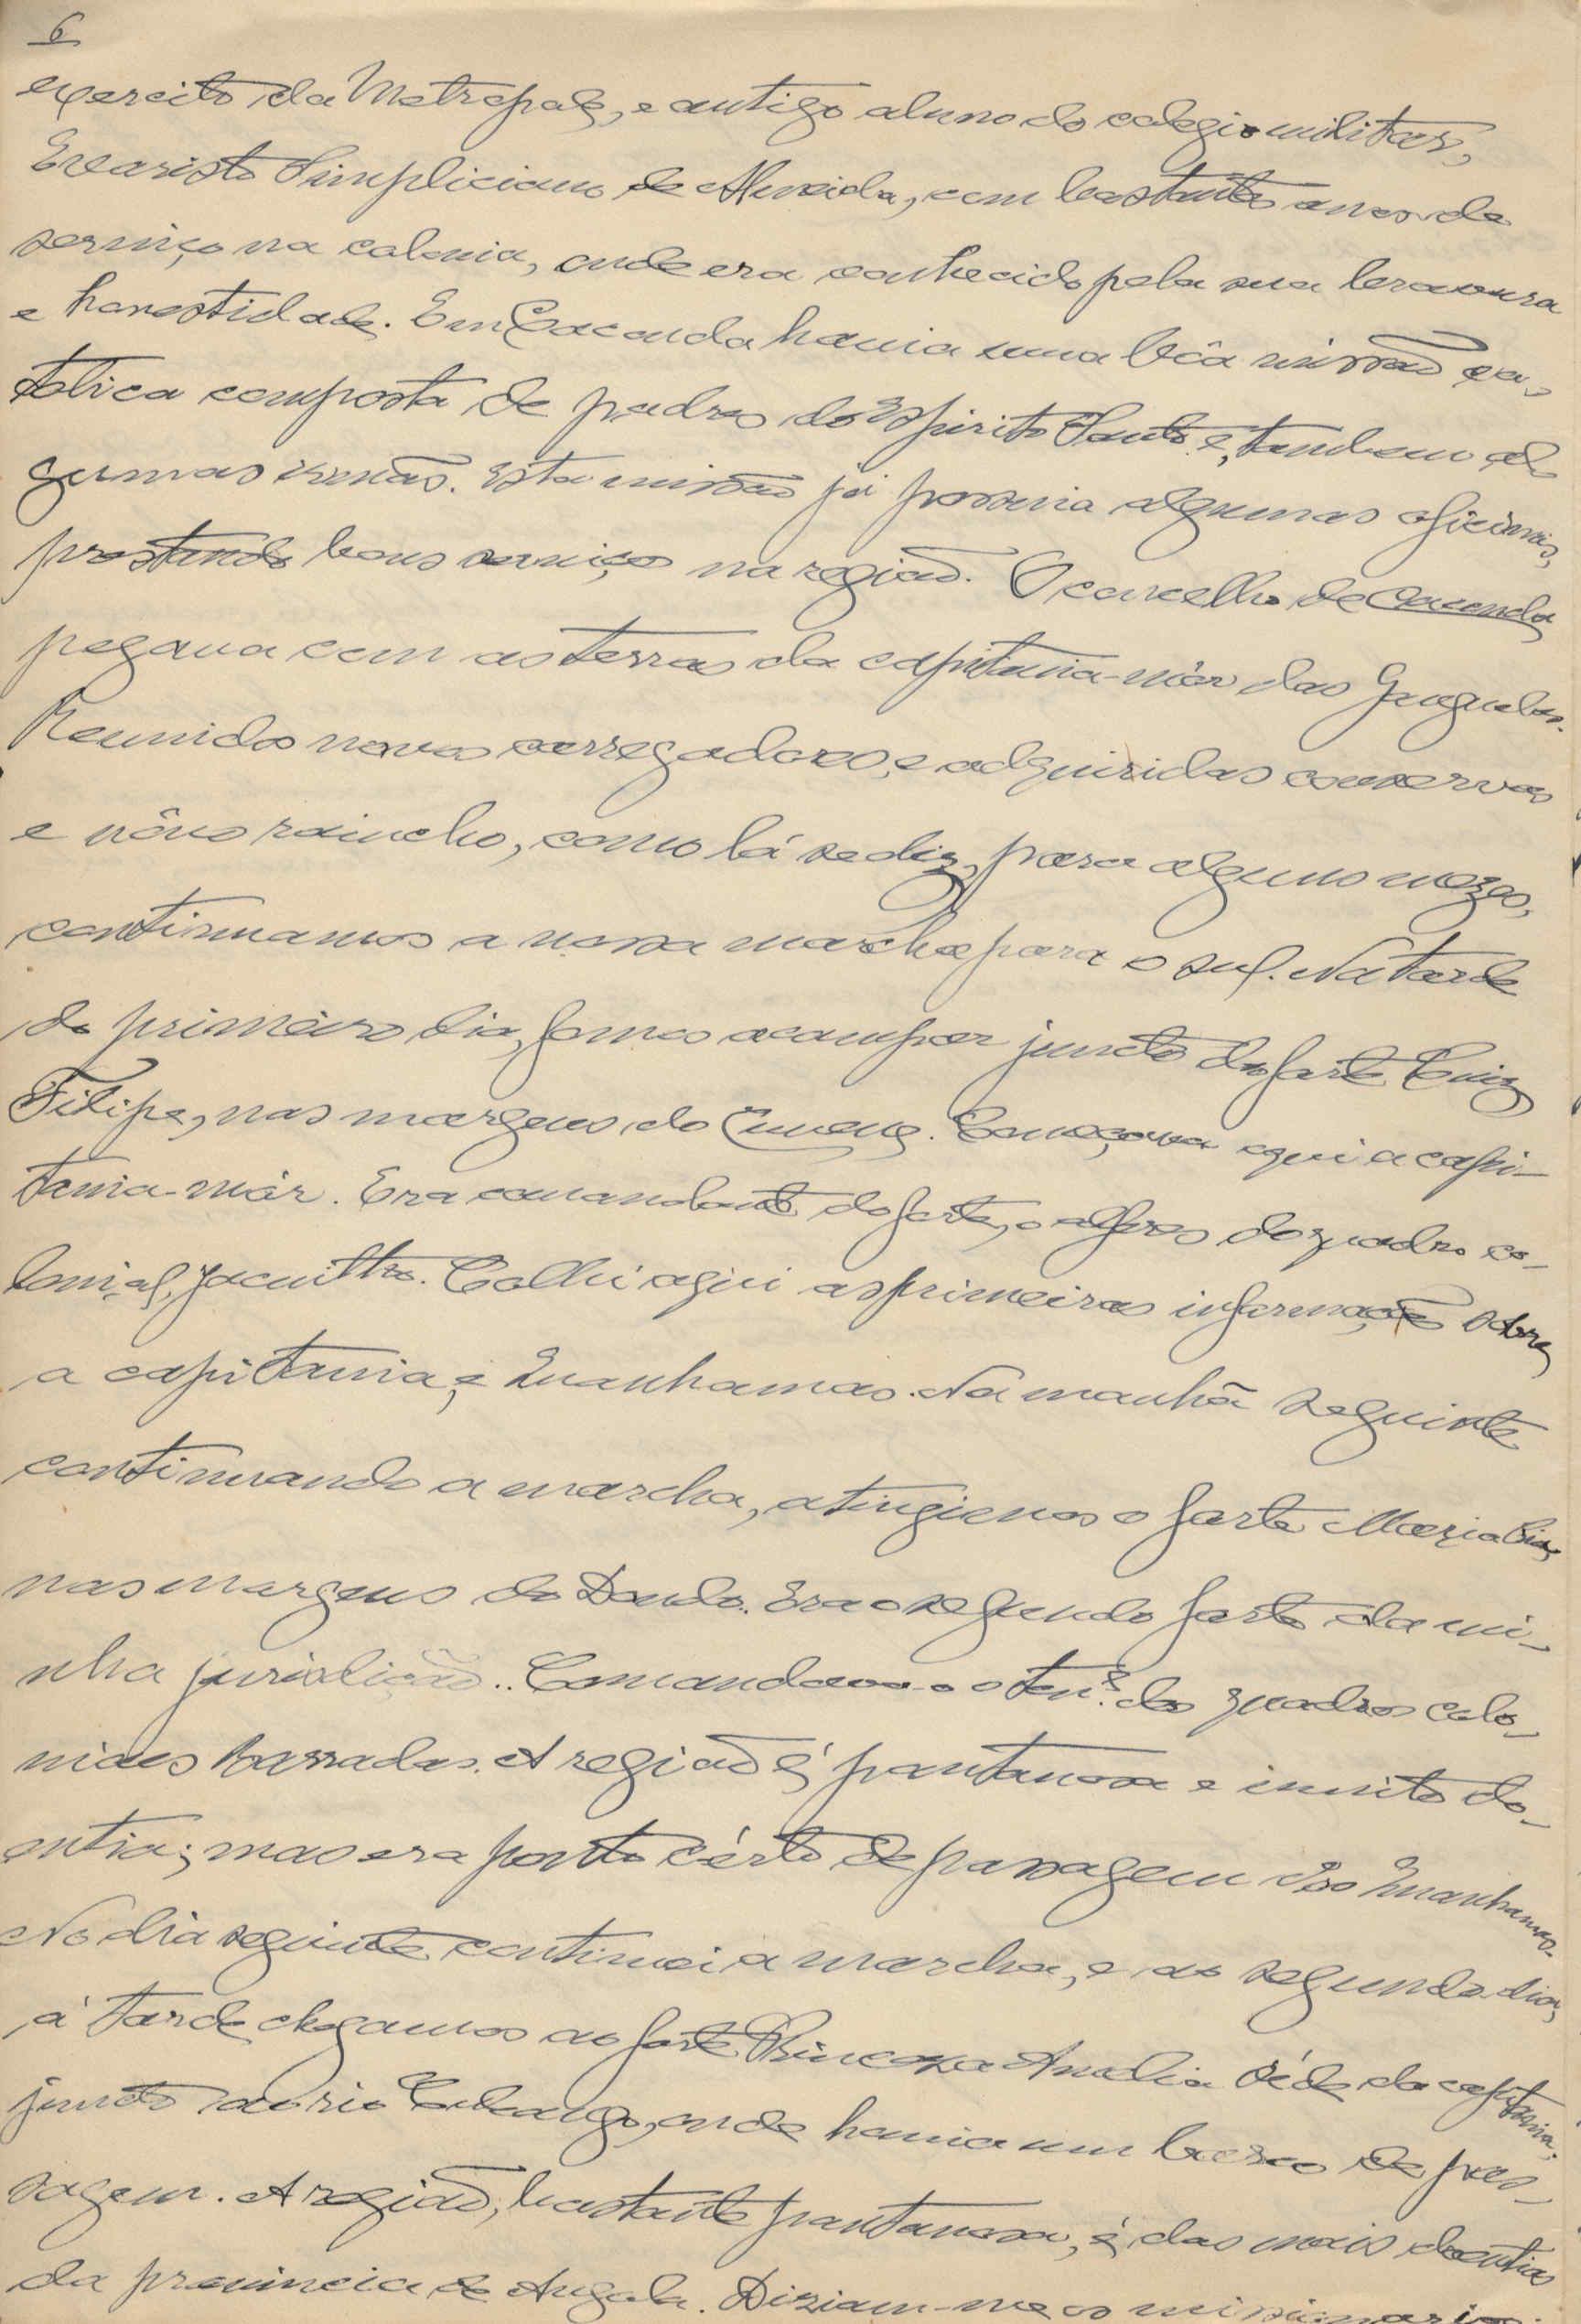 6
exercito da Metropole, e antigo aluno do colegio militar,
Evaristo Simpliciano de Almeida, com bastantes anos de
serviço na colonia, onde era conhecido pela sua bravura
e honestidade. Em Caconda havia uma bôa missão ca-
tolica composta de padres do Espirito Santo e, tambem al-
gumas irmãs. Esta missão já possuia algumas oficinas,
prestando bons serviços na região. O concelho de Caconda,
pegava com as terras da capitania-mór dos Ganguelas.
Reunidos novos carregadores, e adquiridas conservas
e nôvo raincho, como lá se diz, para alguns mezes,
continuamos a nossa marcha para o sul. Na tarde
do primeiro dia, fomos acampar juncto do forte Luiz
Filipe, nas margens do Cuvene. Começava aqui a capi-
tania-mór. Era comandante do forte, o alferes do quadro co-
lonial, Jacintho. Colhi aqui as primeiras informações sobre
a capitania, e Quanhamas. Na manhã seguinte
continuando a marcha, atingiemos o forte Maria Pia,
nas margens do Dondo. Era o segundo forte da mi-
nha jurisdição. Comandava-o o ten.e dos quadros colo-
niaes Barradas. A região é pantanosa e muito do-
entia; mas era ponto cérto de passagem dos Quanhamas.
No dia seguinte continuei a marcha, e ao segundo dia,
á tarde chegamos ao forte Princeza Amelia séde da capitania,
juncto ao rio Cubango, onde havia um barco de pas-
sagem. A região, bastante pantanosa, é das mais doentias
da provincia de Angola. Diziam-me os missionarios